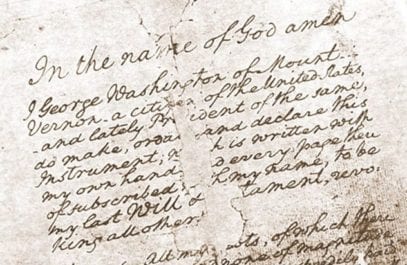 In the name of God amen
I George Washington of Mount
Vernon – a citizen of the United States,
and lately President of the same,
do make, ordain and declare this
Instrument, which is written with
my own hand and every page there
of subscribed with my name, to be
my last Will & Testament, revo
king all other.
All my debts, of which there
none of magnitude